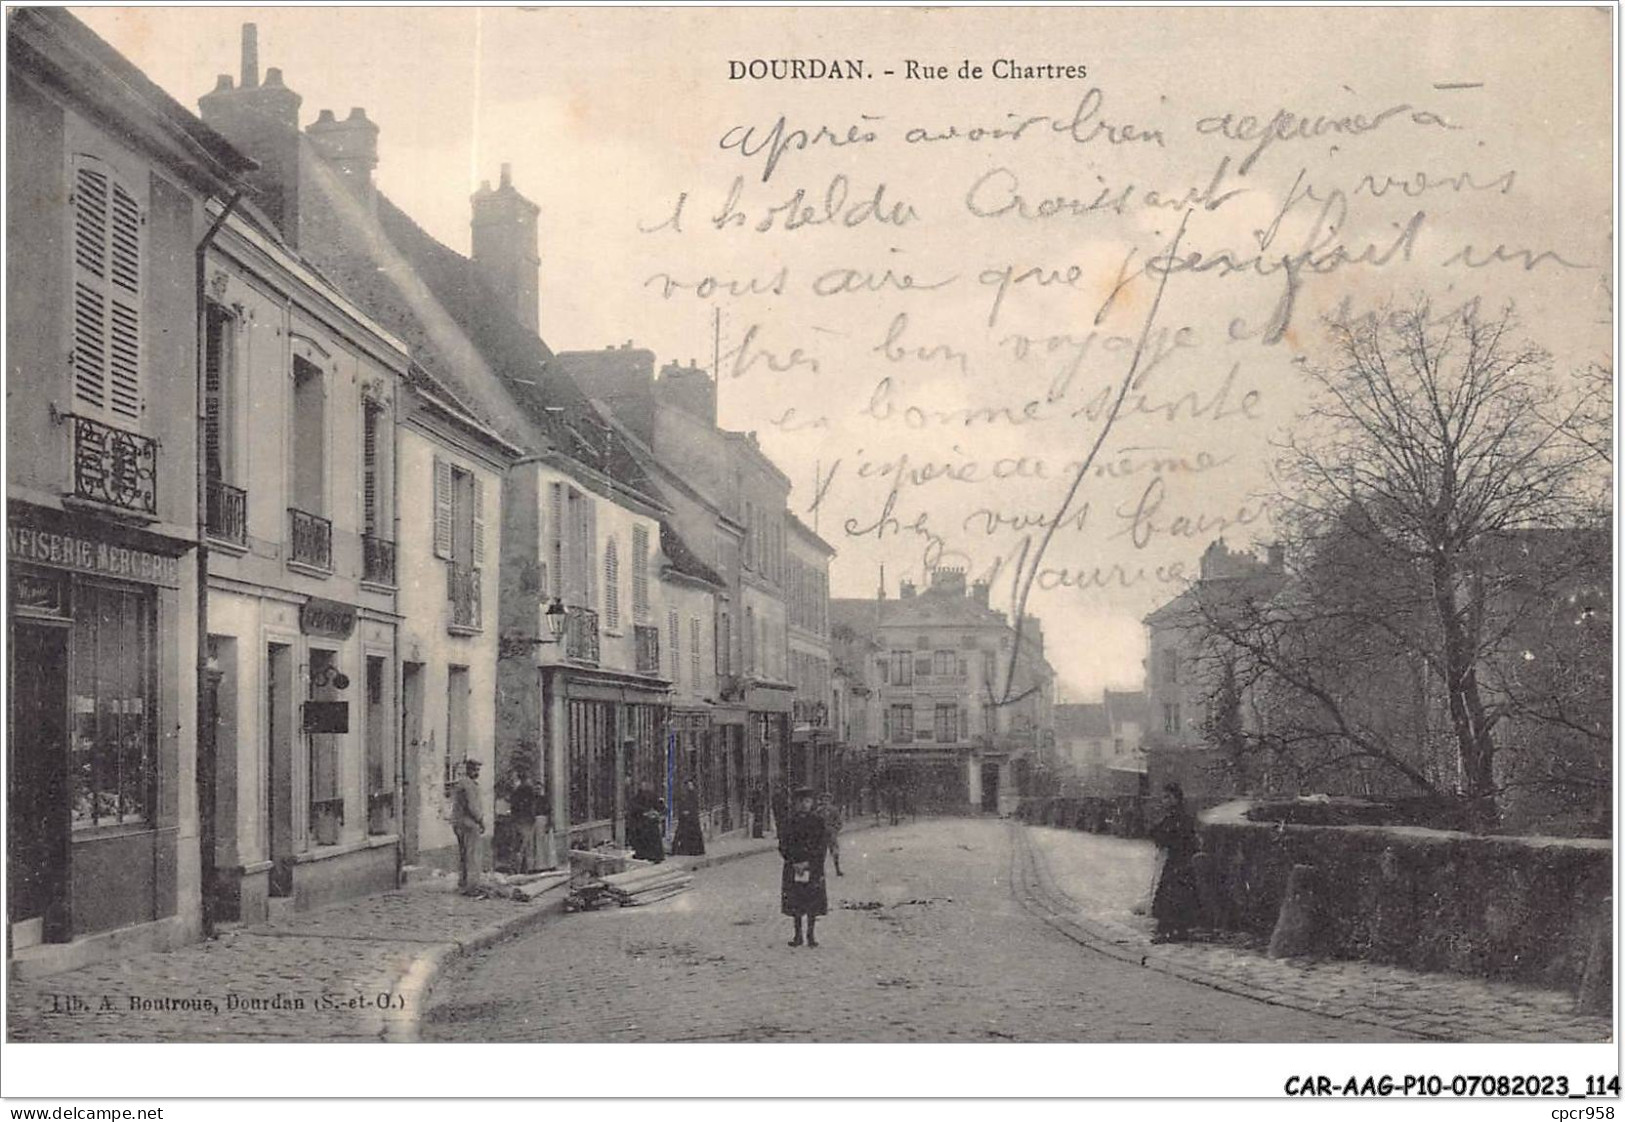 DOURDAN. - Rue de Chartres
après avoir bien dejeuner à
l hotel du Croissant je vous
vous dire que j'ai fait un
très bon voyage et suis
en bonne sante
j'espère de même
chez vous baiser
Maurice
NFISERIE MERCERIE
Lib. A. Boutroue, Dourdan (S.-et-O.)
CAR-AAG-P10-07082023_114
www.delcampe.net
cpcr958